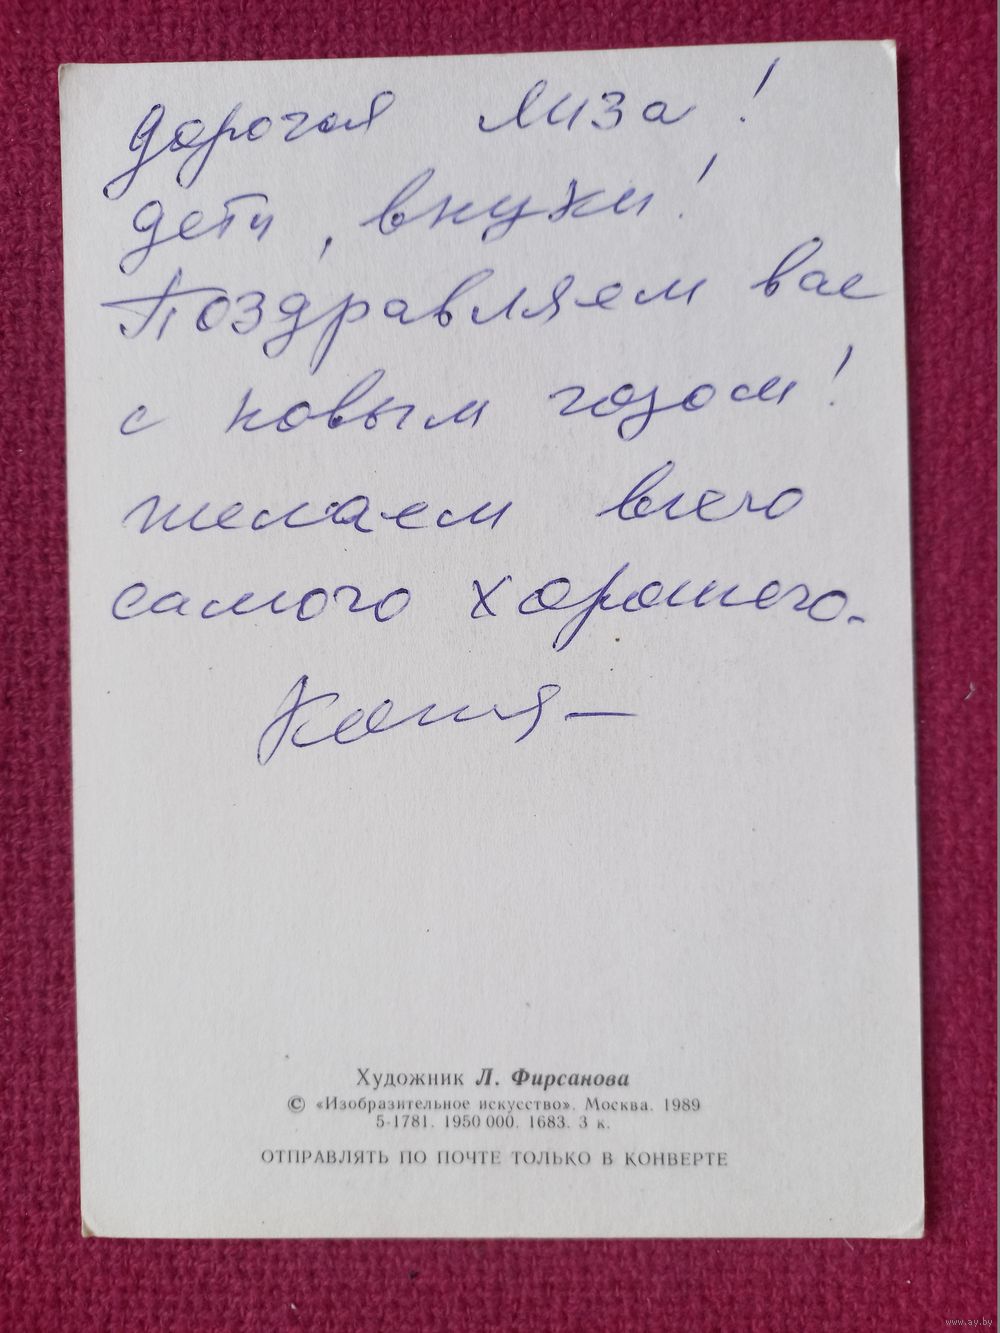 Дорогая Лиза!
дети, внуки!
Поздравляем вас
с новым годом!
желаем всего
самого хорошего.
Художник Л. Фирсанова
© «Изобразительное искусство». Москва. 1989
5-1781. 1950 000. 1683. 3 к.
ОТПРАВЛЯТЬ ПО ПОЧТЕ ТОЛЬКО В КОНВЕРТЕ
www.ay.by